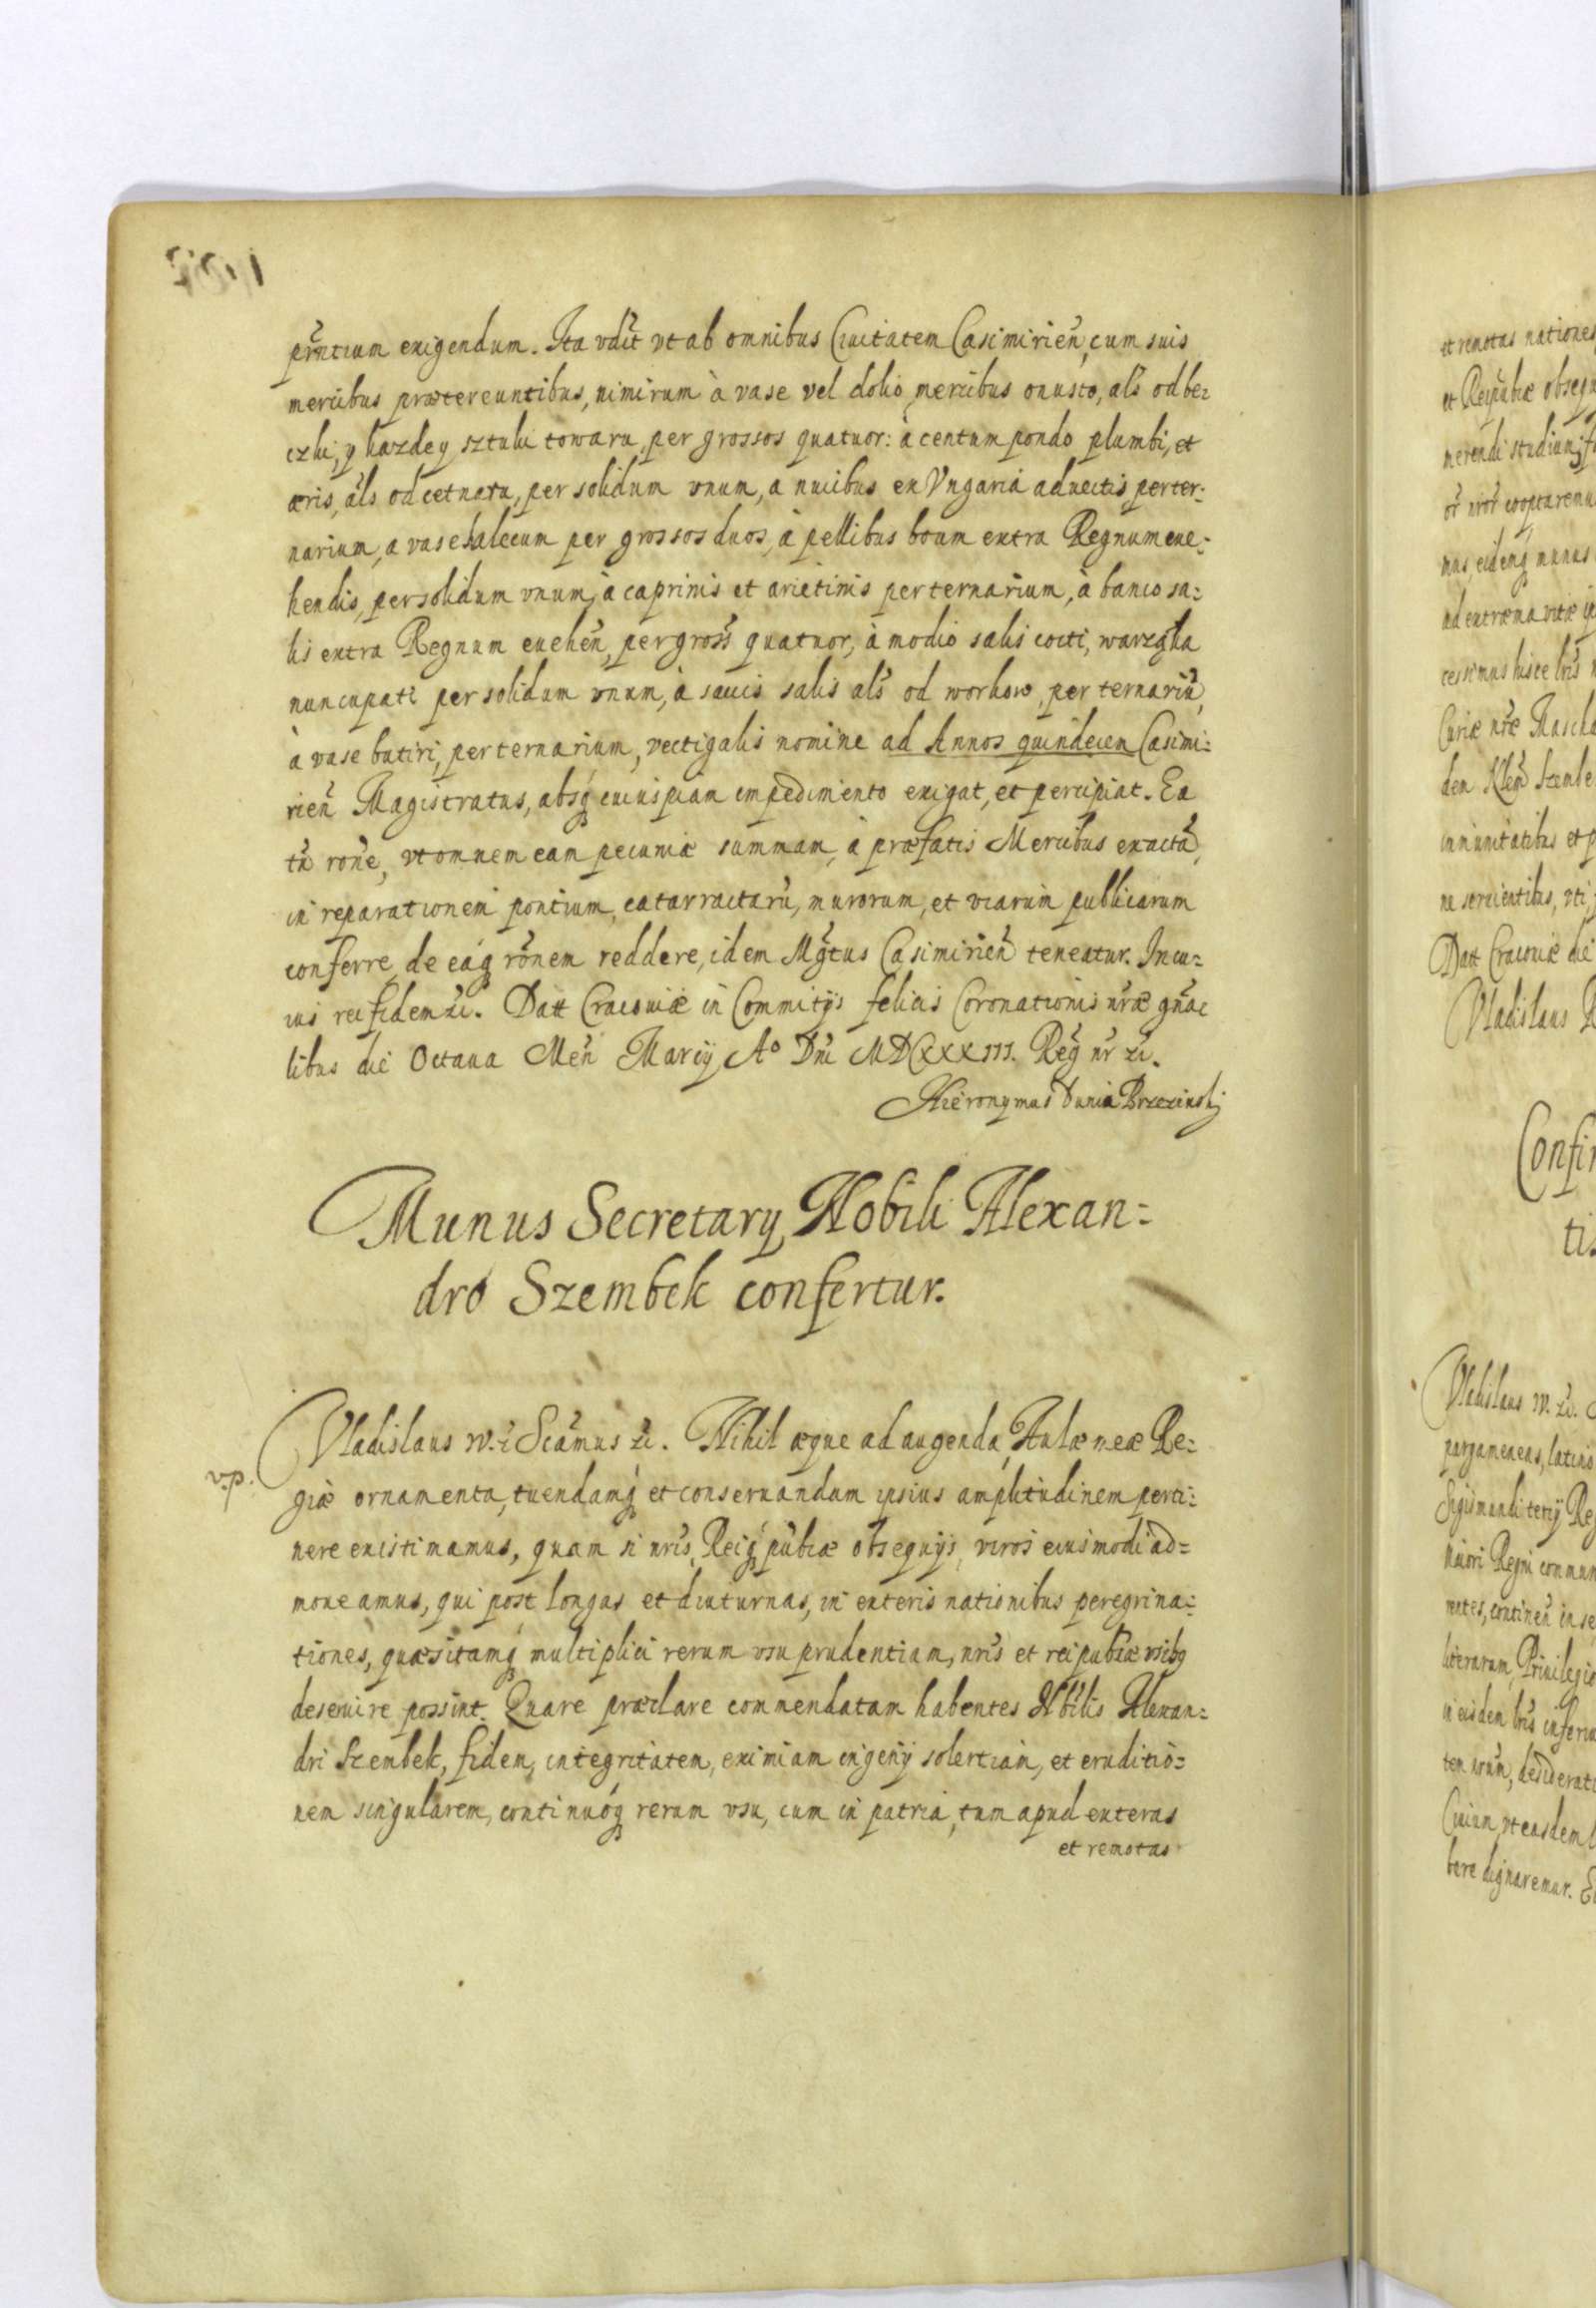 pr̃ntium exigendum. Ita vdčt vt ab omnibus Ciuitatem Casimirien̄, cum suis
mercibus prætereuntibus, nimirum à vase vel dolio mercibus onusto, als̃ od be=
czki, y kazdey sztuki towaru, per grossos quatuor: à centum pondo plumbi, et
æris, als̃ od cetnaru, per solidum vnum, a nucibus ex Vngaria aduectis per ter=
narium, a vase halecum per grossos duos, à pellibus boum extra Regnum eue=
hendis, per solidum vnum, à caprinis et arietinis per ternarium, à banco sa=
lis extra Regnum euehen̄, per gross̃ quatuor, à modio salis cocti, warząka
nuncupati per solidum vnum, à saccis salis als̃ od workow, per ternariū,
à vase butiri, per ternarium, vectigalis nomine ad Annos quindecem Casimi=
rien̄ Magistratus, absq́ cuiuspiam impedimento exigat, et percipiat. Ea
tn̄ rone, vt omnem eam pecuniæ summam, à præfatis Mercibus exactā,
in reparationem pontium, catarractarū, murorum, et viarum publicarum
conferre de eáq rōnem reddere, idem Mgr̃tus Casimirien̄ teneatur. In cu=
ius rei fidem zc̃. Datt Cracouiæ in Commitijs felicis Coronationis nr̃æ gn̄a
libus die Octaua Men̄ Marcij A° Dni MDCXXXIII. Reg̃ nr̃ zc̃.
Hieronymus Dunia Brzezinskj
Munus Secretarij Nobili Alexan=
dro Szembek confertur.
Vladislaus IV. zc̃ Sc̃amus zc̃. Nihil æque ad augenda Aulæ neæ Re=
v.p.
giæ ornamenta, tuendamq́ et conseruandam ipsius amplitudinem perti=
nere existimamus, quam si nr̃is Reiq́ pub̃cæ obsequijs viros eiusmodi ad=
moueamus, qui post longas et diuturnas, in exteris nationibus peregrina=
tiones, quæsitamq́ multiplici rerum vsu prudentiam, nr̃is et reipub̃cæ vsibq
deseruire possint. Quare præclare commendatam habentes Nb̃ilis Alexan=
dri Szembek, fidem, integritatem, eximiam ingenij solertiam, et eruditio=
nem singularem, continuóq rerum vsu, cum in patria, tum apud exteras
et remotas
et remotas nationes
merendi studium
Datt Cracouiæ die
Vladislaus
Confir
Vladislaus IV. zc̃.
pargameneas, latino
Sigismundi tertij Re
maiori Regni commun
literarum, Priuilegio
bere dignaremur.